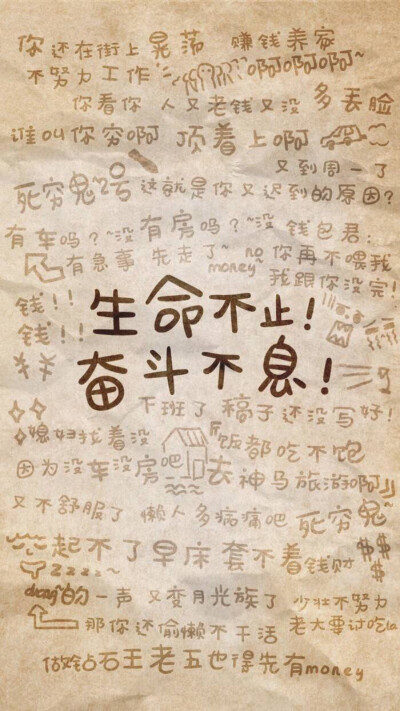 你还在街上晃荡 赚钱养家
不努力工作 啊啊啊啊~
你看你 人又老钱又没 多丢脸
谁叫你穷啊 顶着上啊
又到周一了
死穷鬼~2号 这就是你又迟到的原因?
有车吗?~没 有房吗?~没 钱包君:
有急事 先走了~ no money 你再不喂我
我跟你没完!
钱!!
钱!!
生命不止!
奋斗不息!
下班了 稿子还没写好!
媳妇找着没 饭都吃不饱
因为没车没房吧 去神马旅游啊
又不舒服了 懒人多病痛吧 死穷鬼~
起不了早床套不着钱财 $$$
Zzzz~
duang的一声 又变月光族了 少壮不努力
那你还偷懒不干活 老大要讨吃
做钻石王老五也得先有money